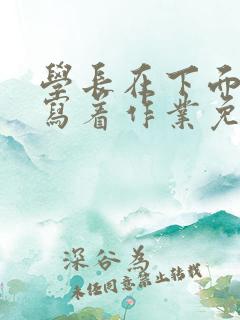 學長在下面
寫着作業免
深谷為
未经同意禁止转载